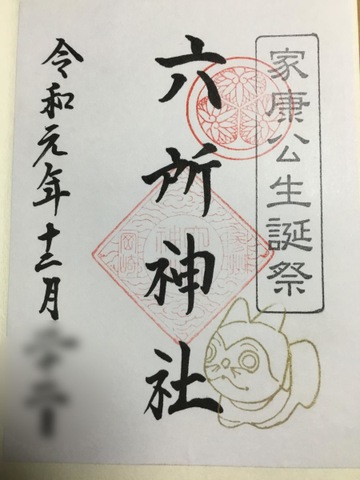 家康公生誕祭
六所神社
令和元年十二月